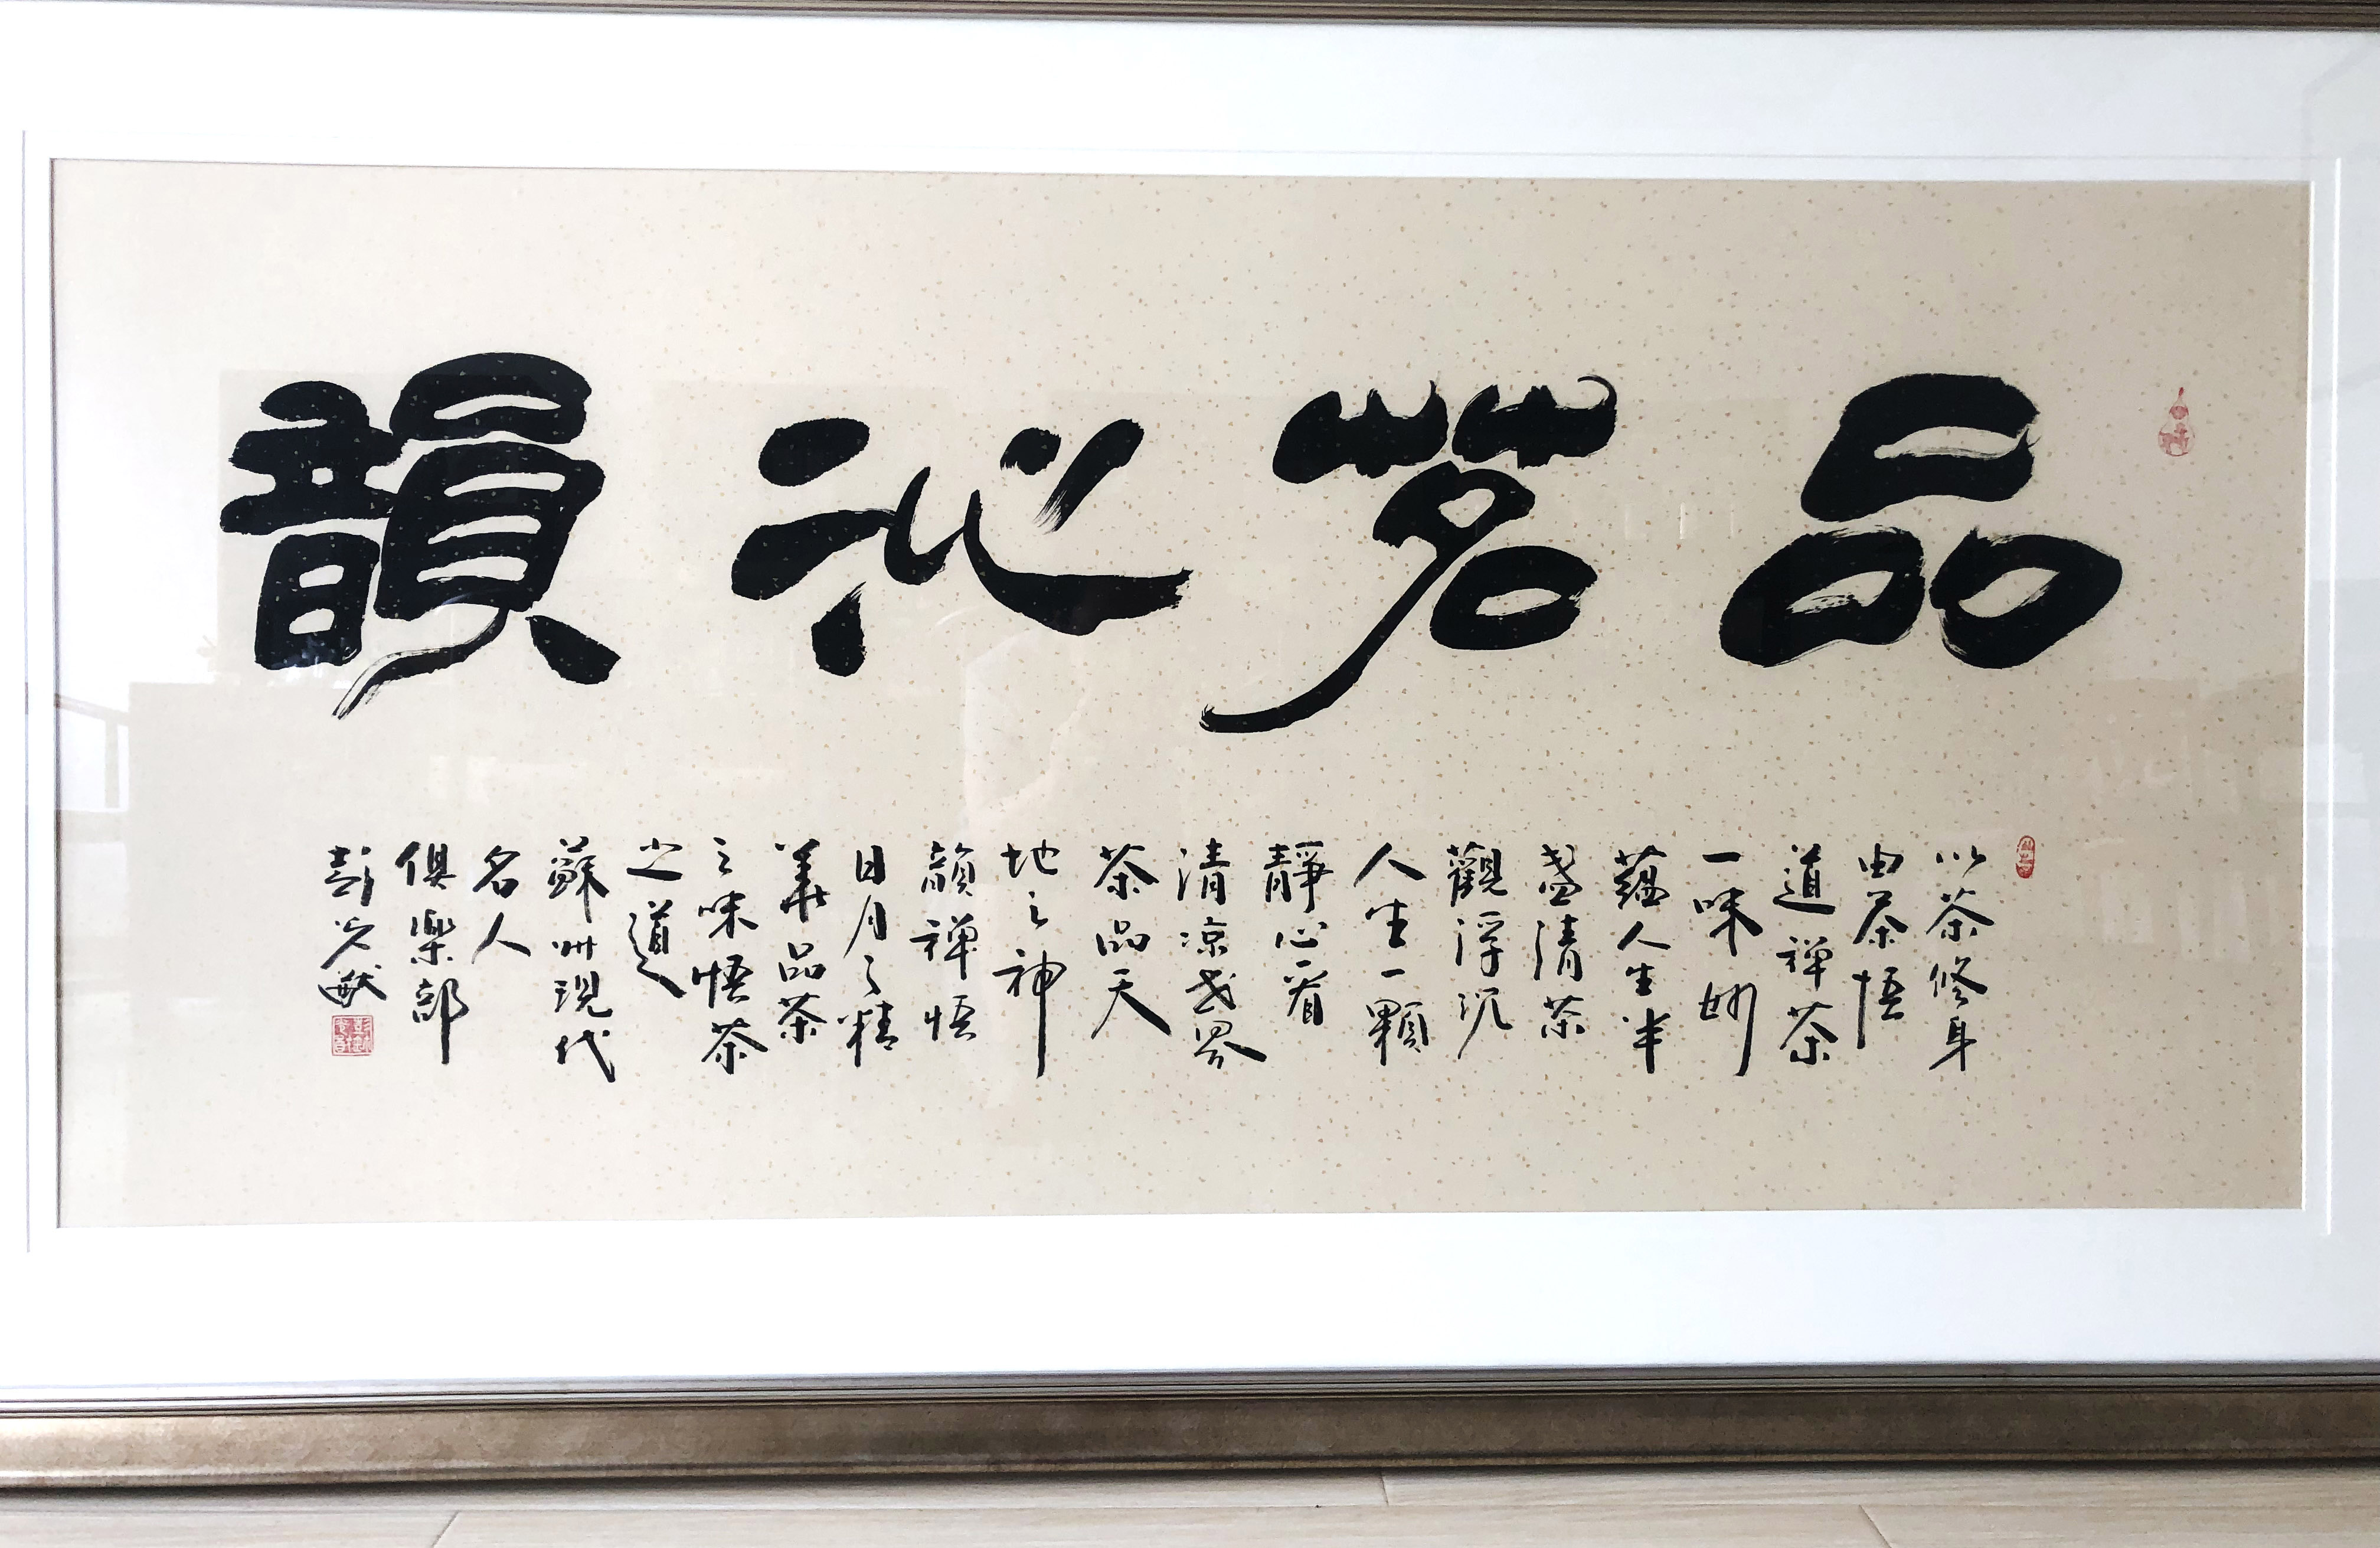 品茗沁韻
以茶修身
由茶悟
道禅茶
一味妙
蘊人生半
盞清茶
觀浮沉
人生一顆
靜心看
清凉世界
茶品天
地之神
韻禅悟
日月之精
華品茶
之味悟茶
之道
蘇州現代
名人
俱樂部
彭